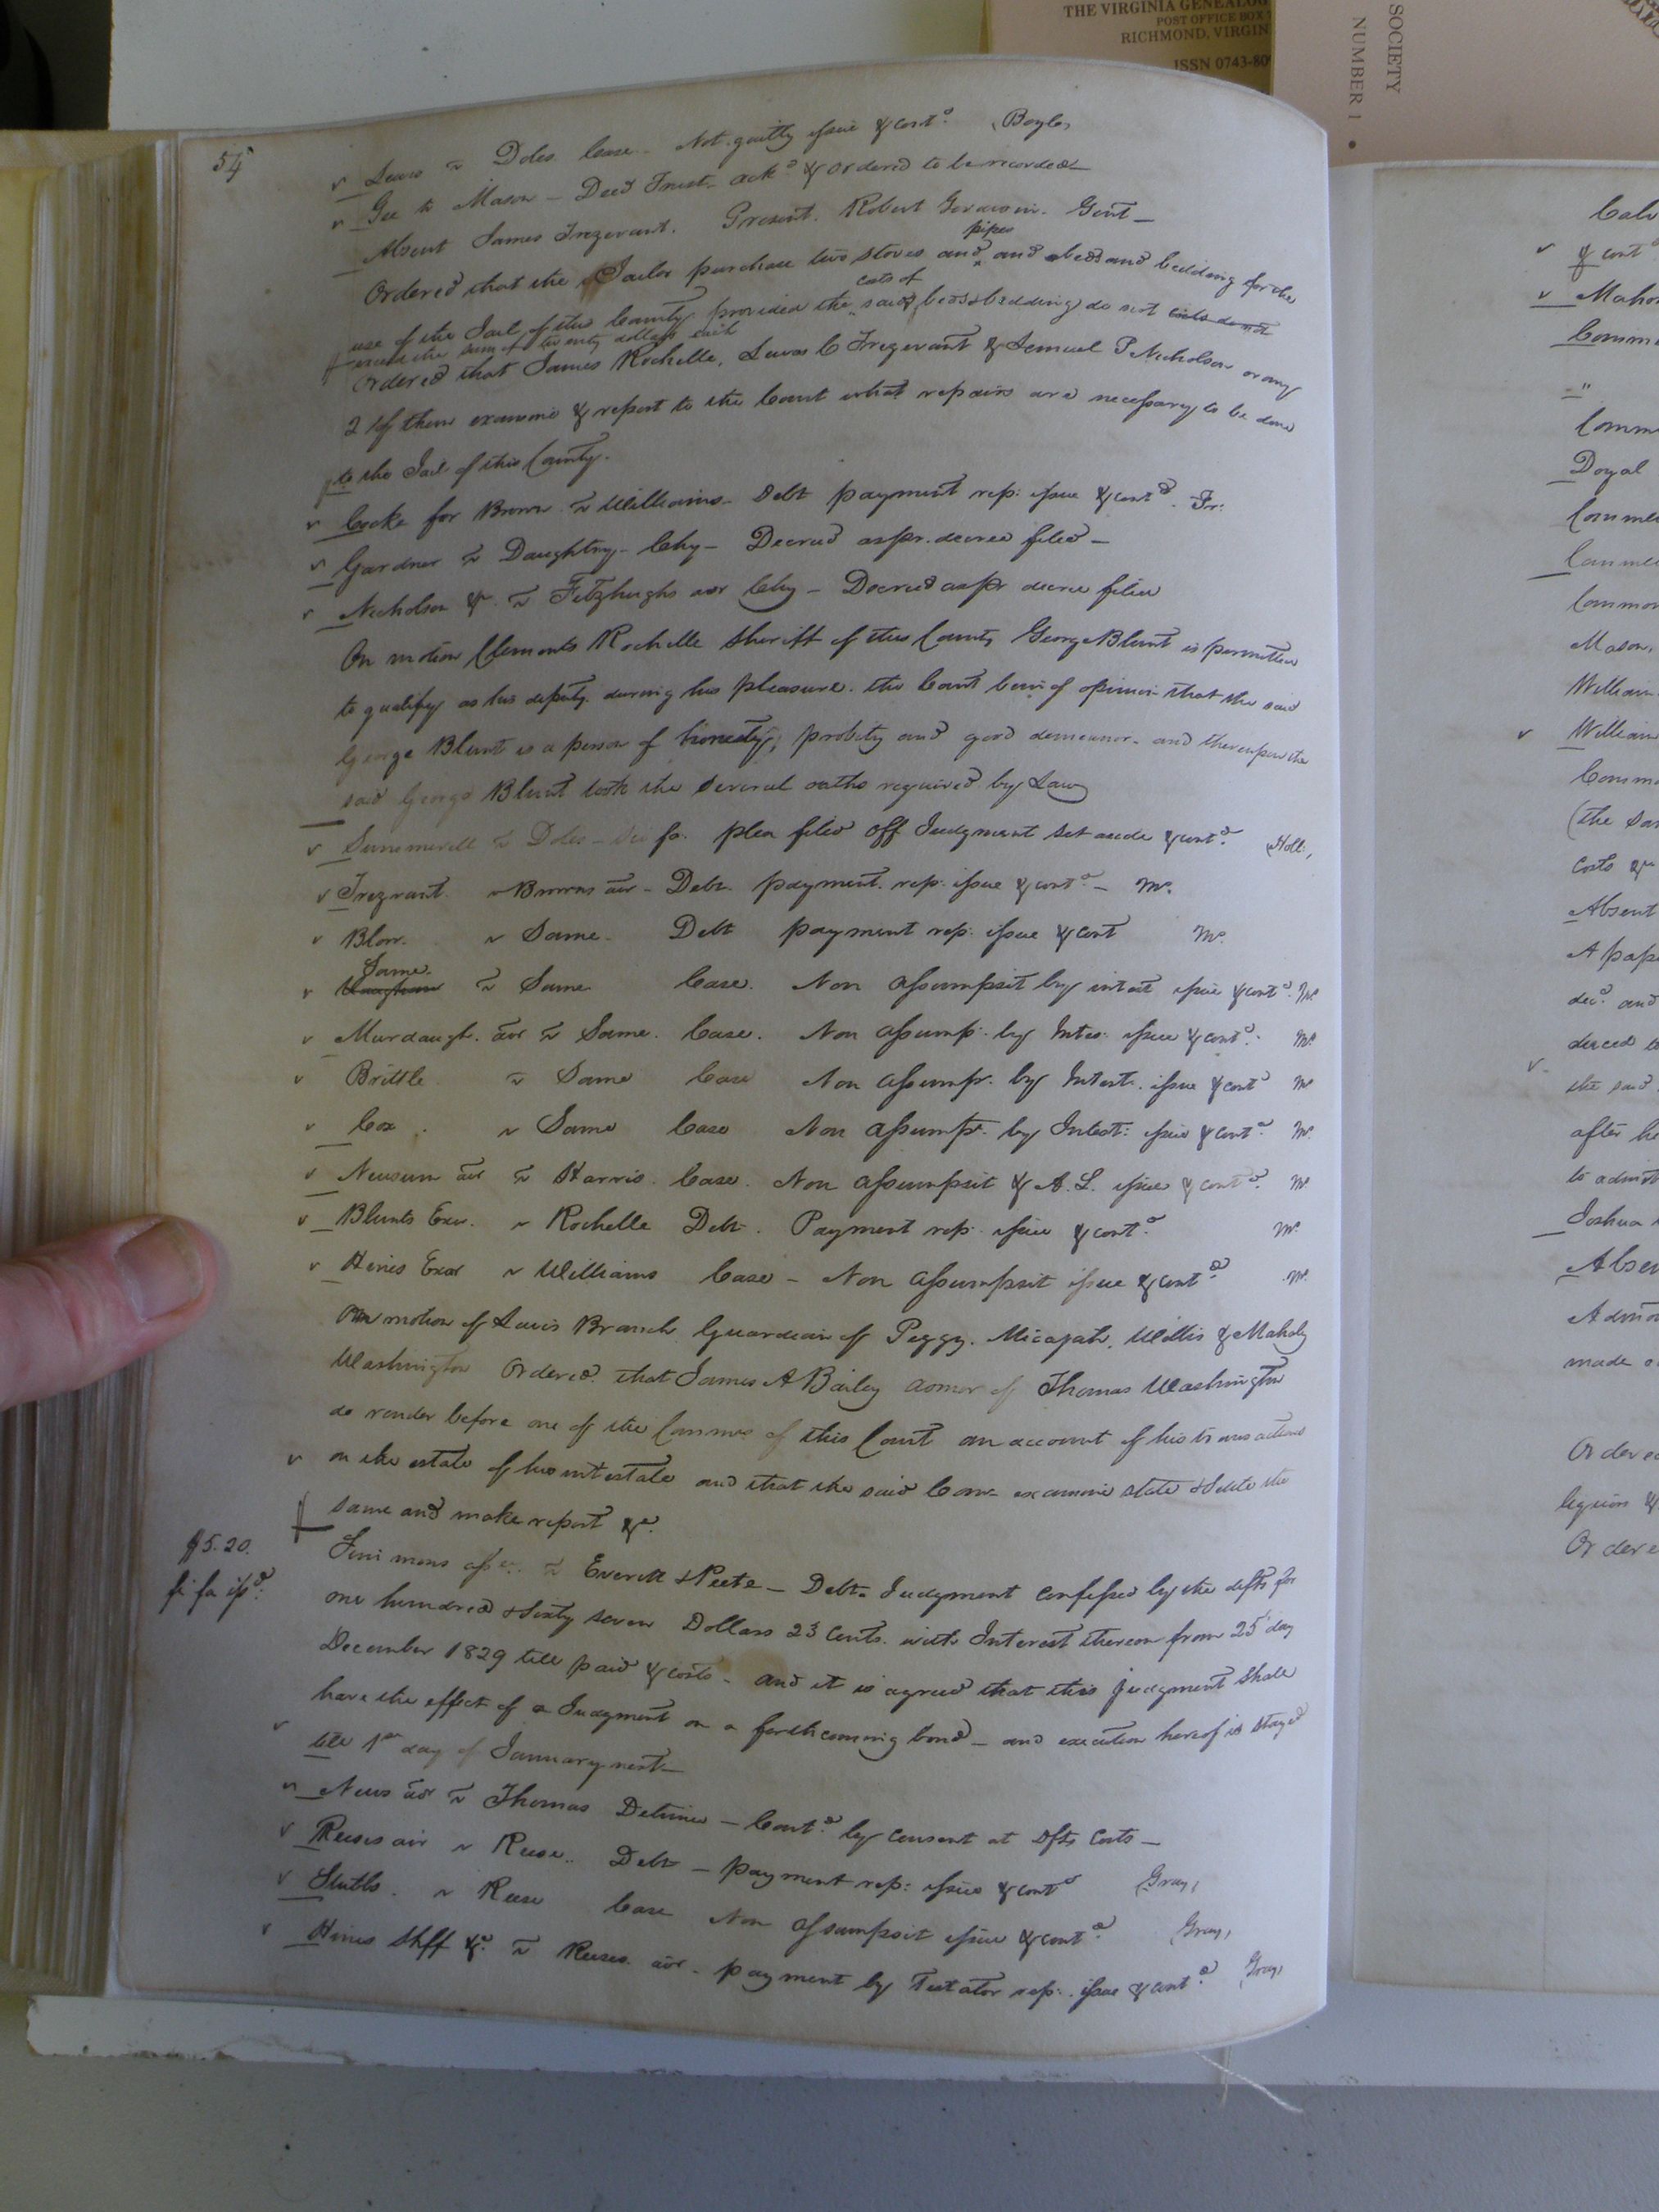 THE VIRGINIA GENEALOG
POST OFFICE BOX
RICHMOND, VIRGIN
ISSN 0743-80
SOCIETY
NUMBER 1 •
54
Lewis vs Doles Case - Not guilty issue & contd. (Boyle)
Gee to Mason - Deed Trust - ackd & ordered to be recorded
Absent James Trezevant. Present. Robert Gent -
Ordered that the Jailor purchase two stoves and pipes and beds and bedding for the
use of the Jail of this County provided the costs of said beds & bedding do not costs do not
exceed the sum of twenty dollars each
Ordered that James Rochelle, Lewis C Trezevant & Lemuel P Nicholson or any
2 of them examine & report to the Court what repairs are necessary to be done
to the Jail of this County.
Cocke for Brown vs Williams - Debt payment rep: issue & contd. Tr:
Gardner vs Daughtry - Chy - Decreed as pr. decree filed -
Nicholson &c. vs Fitzhughs aor Chy - Decreed as pr decree filed
On motion Clements Rochelle Sheriff of this County George Blunt is permitted
to qualify as his deputy during his pleasure. the Court being of opinion that the said
George Blunt is a person of honesty, probity and good demeanor - and thereupon the
said George Blunt took the several oaths required by Law
Summerell vs Doles - Sci fa. plea filed Off Judgment set aside & contd. (Holl:)
Trezvant. vs Browns aor - Debt. payment. rep: issue & contd - Mc.
Blow. vs Same. Debt payment rep: issue & cont Mc.
Same. Vaughan vs Same Case. Non Assumpsit by intest issue & contd. Mc.
Murdaugh. aor vs Same. Case. Non Assump. by Intes: issue & contd. Mc.
Brittle vs Same Case Non Assump. by Intest. issue & contd Mc
Cox. vs Same Case Non Assumpt. by Intest: issue & contd. Mc.
Newsum aor vs Harris. Case. Non Assumpsit & A. L. issue & contd. Mc.
Blunts Exor. vs Rochelle Debt. Payment rep: issue & contd. Mc.
Hines Exor vs Williams Case - Non Assumpsit issue & contd. Mc.
On motion of Lewis Branch Guardian of Peggy, Micajah, Willis & Mahaly
Washington Ordered that James A Bailey admor of Thomas Washington
do render before one of the Commrs of this Court an account of his transactions
on the estate of his intestate and that the said Comr examine state & settle the
same and make report &c.
$5.20.
fi fa issd.
Simmons assee. vs Everett & Peete - Debt - Judgment confessed by the defts for
one hundred & sixty seven Dollars 23 Cents with Interest thereon from 25 day
December 1829 till paid & costs - and it is agreed that this judgment shall
have the effect of a Judgment on a forthcoming bond - and execution hereof is stayed
till 1st day of January next -
News aor vs Thomas Detinue - Contd. by consent at Dfts Costs -
Reeses aor vs Reese. Debt - payment rep: issue & contd (Gray)
Stubbs. vs Reese Case Non Assumpsit issue & contd. (Gray)
Hines Shff &c. vs Reeses. aor - payment by Testator rep:. issue & contd. (Gray)
& cont
Maho
Comm
"
Comm
Doyal
Comm
Comm
Common
Mason,
William
William
Comm
(the Sa
costs &c
Absent
A pap
decd. and
duced
the said
after he
to admit
Joshua
Abse
Admo
made
Ordere
ligion &
Ordere